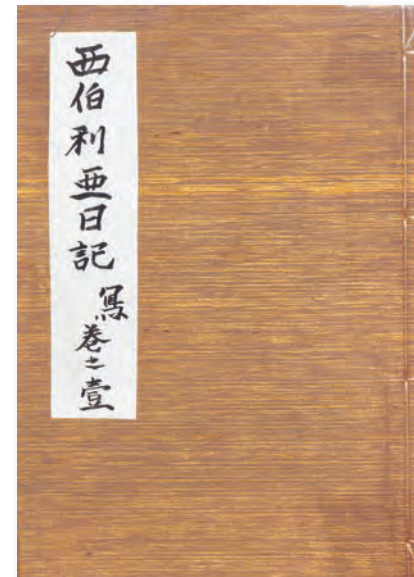 西伯利亜日記 寫 巻之壹